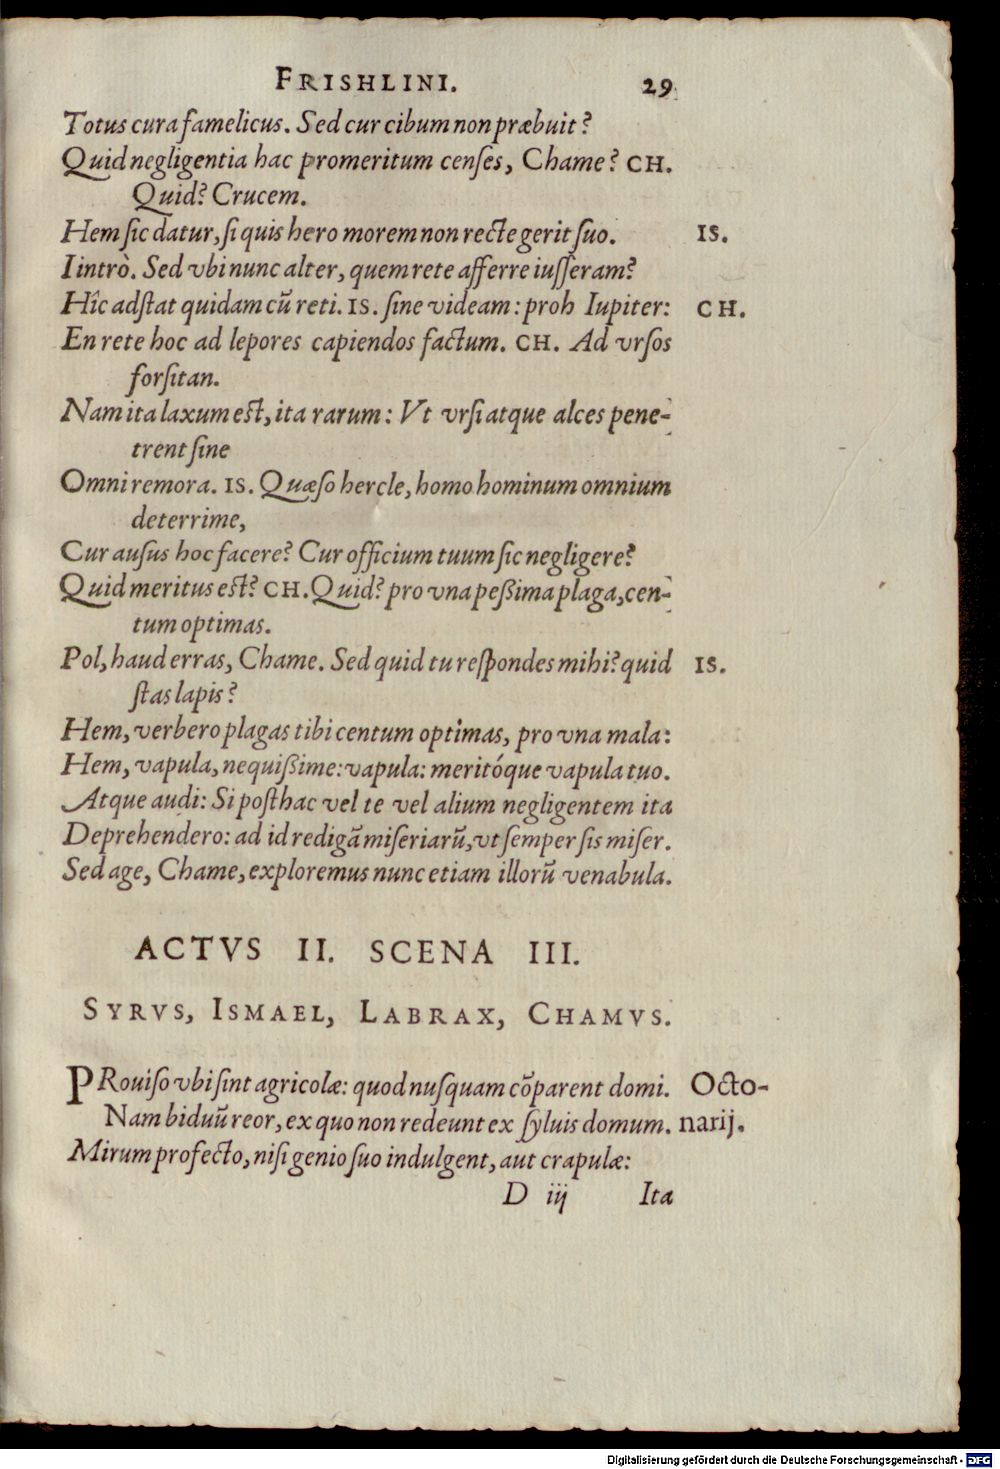 FRISHLINI. 29
Totus cura famelicus. Sed cur cibum non præbuit?
Quid negligentia hac promeritum censes, Chame? CH.
Quid? Crucem.
Hem sic datur, si quis hero morem non recte gerit suo. IS.
I intrò. Sed vbi nunc alter, quem rete afferre iusseram?
Hîc adstat quidam cũ reti. IS. sine videam: proh Iupiter: CH.
En rete hoc ad lepores capiendos factum. CH. Ad vrsos
forsitan.
Nam ita laxum est, ita rarum: Vt vrsi atque alces pene-
trent sine
Omni remora. IS. Quæso hercle, homo hominum omnium
deterrime,
Cur ausus hoc facere? Cur officium tuum sic negligere?
Quid meritus est? CH. Quid? pro vna peßima plaga, cen-
tum optimas.
Pol, haud erras, Chame. Sed quid tu respondes mihi? quid IS.
stas lapis?
Hem, verbero plagas tibi centum optimas, pro vna mala:
Hem, vapula, nequißime: vapula: meritóque vapula tuo.
Atque audi: Si posthac vel te vel alium negligentem ita
Deprehendero: ad id redigã miseriarũ, vt semper sis miser.
Sed age, Chame, exploremus nunc etiam illorũ venabula.
ACTVS II. SCENA III.
SYRVS, ISMAEL, LABRAX, CHAMVS.
PRouiso vbi sint agricolæ: quod nusquam cõparent domi. Octo-
Nam biduũ reor, ex quo non redeunt ex syluis domum. narij.
Mirum profecto, nisi genio suo indulgent, aut crapulæ:
D iij Ita
Digitalisierung gefördert durch die Deutsche Forschungsgemeinschaft - DFG